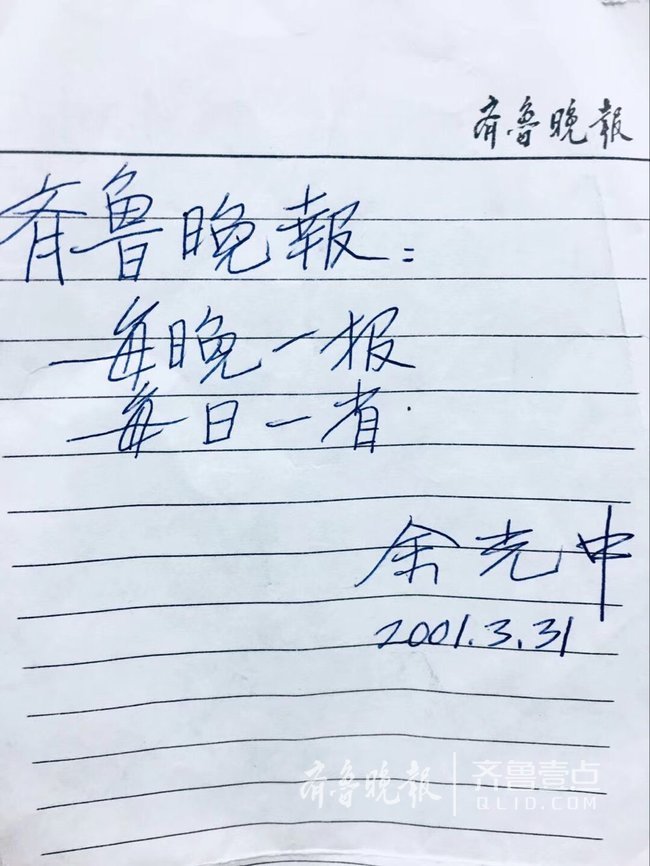 齐鲁晚報
齐鲁晚報：
每晚一报
每日一省
余光中
2001.3.31
齐鲁晚報 | 齐鲁壹点
QLID.COM